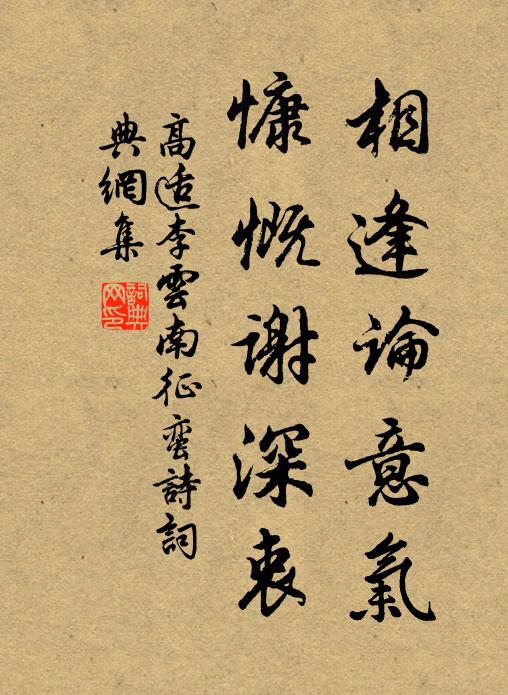 相逢論意氣
慷慨謝深衷
高适李雲南征蠻詩詞
典網集
詞典
网印